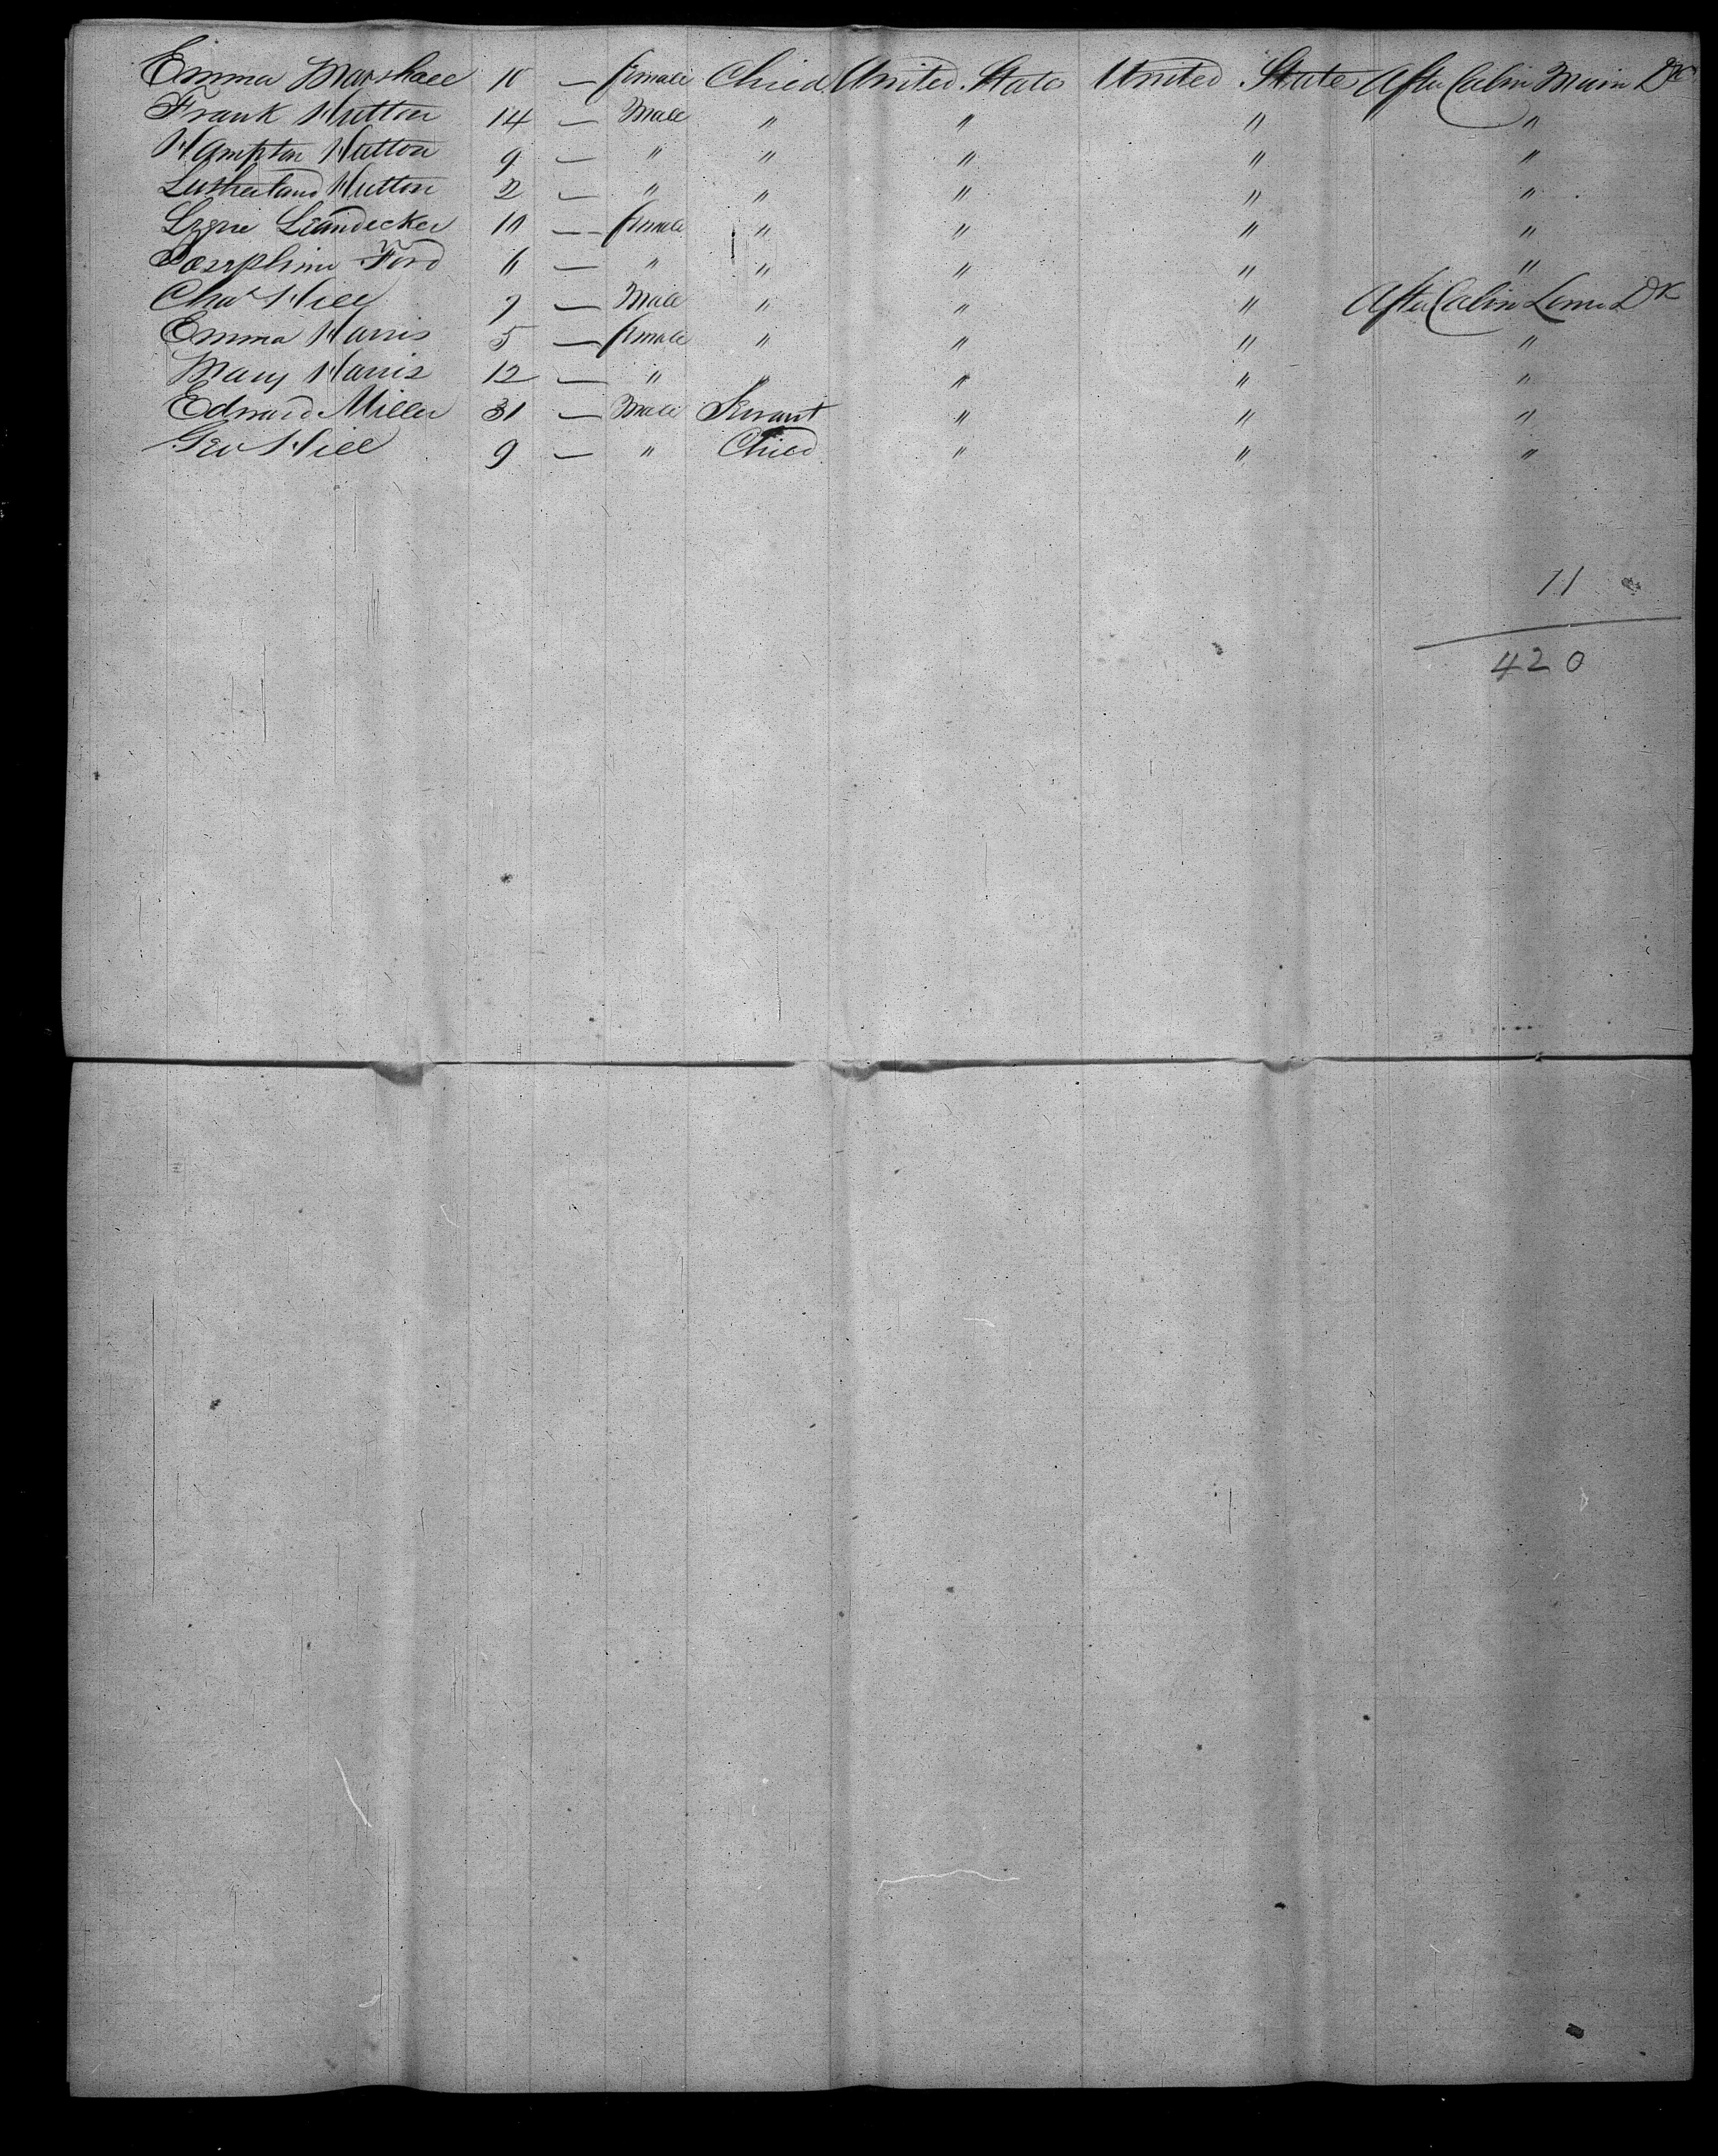 Emma Marshall 10 — female Child United States United States After Cabin Main Dk
Frank Hutton 14 — Male " " " "
Hampton Hutton 9 — " " " " "
Sutherland Hutton 2 — " " " " "
Lizzie Leandecker 11 — female " " " "
Josephine Ford 6 — " " " " "
Chas Hill 7 — Male " " " After Cabin Lower Dk
Emma Harris 5 — female " " " "
Mary Harris 12 — " " " " "
Edward Miller 31 — Male Servant " " "
Geo Hill 9 — " Child " " "
11
420